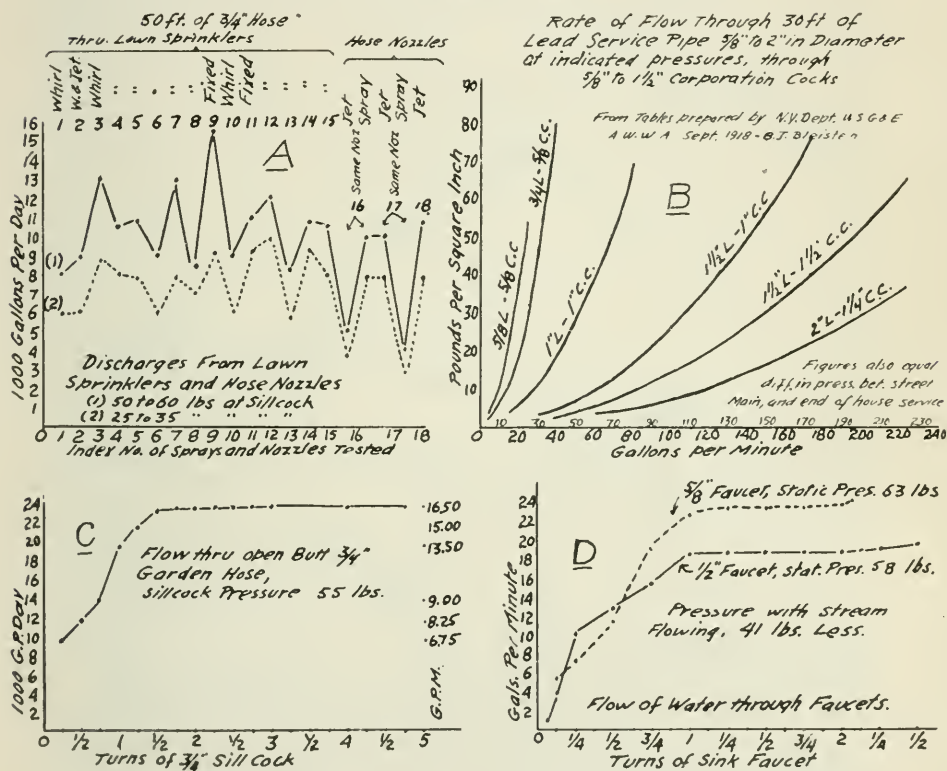 50 ft. of 3/4" Hose
Thru. Lawn Sprinklers
Hose Nozzles
Whirl W.&Jet. Whirl " " " " " Fixed Whirl Fixed " " " "
1 2 3 4 5 6 7 8 9 10 11 12 13 14 15
Jet Spray Jet Spray Jet
Same Noz Same Noz
16 17 18
A
1000 Gallons Per Day
16
15
14
13
12
11
10
9
8
7
6
5
4
3
2
1
(1)
(2)
Discharges From Lawn
Sprinklers and Hose Nozzles
(1) 50 to 60 lbs at Sillcock
(2) 25 to 35 " " "
0 1 2 3 4 5 6 7 8 9 10 11 12 13 14 15 16 17 18
Index No. of Sprays and Nozzles Tested
Rate of Flow Through 30 ft of
Lead Service Pipe 5/8" to 2" in Diameter
at indicated pressures, through
5/8" to 1 1/2" Corporation Cocks
From Tables prepared by N.Y. Dept. W S G & E
A.W.W.A. Sept. 1918 - B.J. Bleistein
B
Pounds Per Square Inch
90
80
70
60
50
40
30
20
10
5/8 L - 5/8 C.C
3/4 L - 5/8 C.C.
1" L - 1" C.C.
1 1/2" L - 1" C.C
1 1/2" L - 1 1/2" C.C.
2" L - 1 1/4" C.C.
Figures also equal
diff. in press. bet. street
Main, and end of house service
10 30 50 70 90 110 130 150 170 190 210 230
0 20 40 60 80 100 120 140 160 180 200 220 240
Gallons per Minute
C
1000 G.P. Day
24
22
20
18
16
14
12
10
8
6
4
2
Flow thru open Butt 3/4"
Garden Hose,
sillcock Pressure 55 lbs.
16.50
15.00
13.50
9.00
8.25
6.75
G.P.M.
0 1/2 1 1/2 2 1/2 3 1/2 4 1/2 5
Turns of 3/4" Sill Cock
D
Gals. Per Minute
24
22
20
18
16
14
12
10
8
6
4
2
5/8" Faucet, Static Pres. 63 lbs
1/2" Faucet, stat. Pres. 58 lbs.
Pressure with stream
Flowing, 41 lbs. Less.
Flow of Water through Faucets.
0 1/4 1/2 3/4 1 1/4 1/2 3/4 2 1/4 1/2
Turns of Sink Faucet